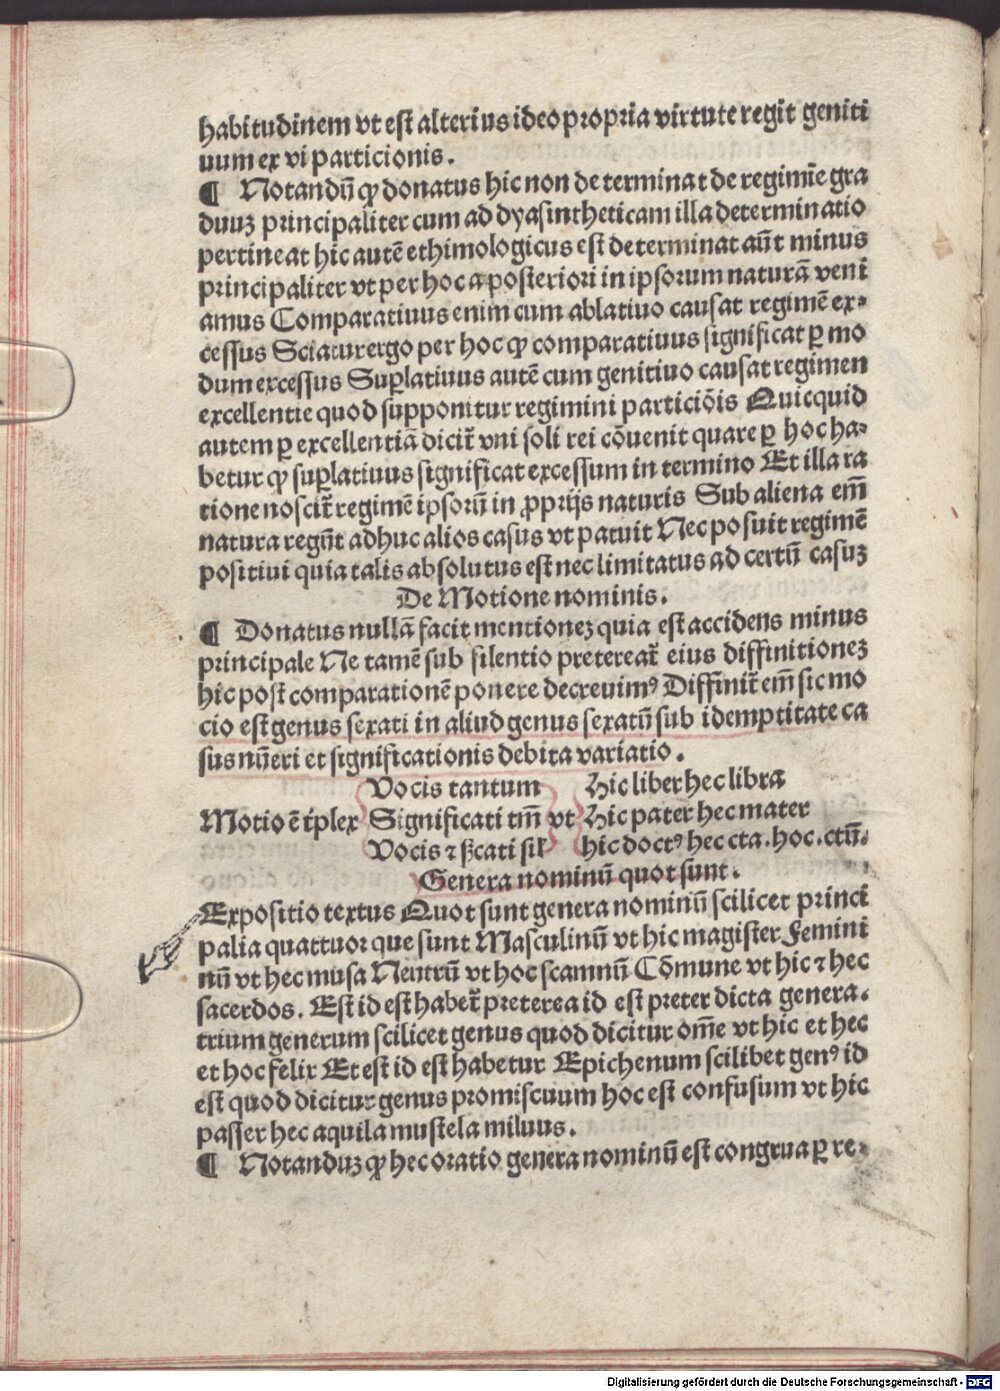 habitudinem vt est alterius ideo propria virtute regit geniti
uum ex vi particionis.
¶ Notandū ꝙ donatus hic non determinat de regimīe gra
duuꝫ principaliter cum ad dyasintheticam illa determinatio
pertineat hic autē ethimologicus est determinat aūt minus
principaliter vt per hoc a posteriori in ipsorum naturā veni
amus Comparatiuus enim cum ablatiuo causat regimē ex⸗
cessus Sciatur ergo per hoc ꝙ comparatiuus significat ꝑ mo
dum excessus Suꝑlatiuus autē cum genitiuo causat regimen
excellentie quod supponitur regimini particiōis Quicquid
autem ꝑ excellentiā dicit̄ vni soli rei cōuenit quare ꝑ hoc ha⸗
betur ꝙ suꝑlatiuus significat excessum in termino Et illa ra
tione noscit̄ regimē ipsorū in ꝓprijs naturis Sub aliena em̄
natura regūt adhuc alios casus vt patuit Nec posuit regimē
positiui quia talis absolutus est nec limitatus ad certū casuꝫ
De Motione nominis.
¶ Donatus nullā facit mentioneꝫ quia est accidens minus
principale Ne tamē sub silentio pretereat̄ eius diffinitioneꝫ
hic post comparationē ponere decreuimꝰ Diffinit̄ em̄ sic mo
cio est genus sexati in aliud genus sexatū sub idemptitate ca
sus nūeri et significationis debita variatio.
Vocis tantum Hic liber hec libra
Motio ē tṙplex Significati tm̄ vt Hic pater hec mater
Vocis ⁊ ẞcati sil̄ hic doctꝰ hec cta. hoc. ctū.
Genera nominū quot sunt.
Expositio textus Quot sunt genera nominū scilicet princi
palia quattuor que sunt Masculinū vt hic magister Femini
nū vt hec musa Neutrū vt hoc scamnū Cōmune vt hic ⁊ hec
sacerdos. Est id est habet̄ preterea id est preter dicta genera.
trium generum scilicet genus quod dicitur om̄e vt hic et hec
et hoc felix Et est id est habetur Epichenum scilibet genꝰ id
est quod dicitur genus promiscuum hoc est confusum vt hic
passer hec aquila mustela miluus.
¶ Notanduꝫ ꝙ hec oratio genera nominū est congrua ꝑ re⸗
Digitalisierung gefördert durch die Deutsche Forschungsgemeinschaft - DFG